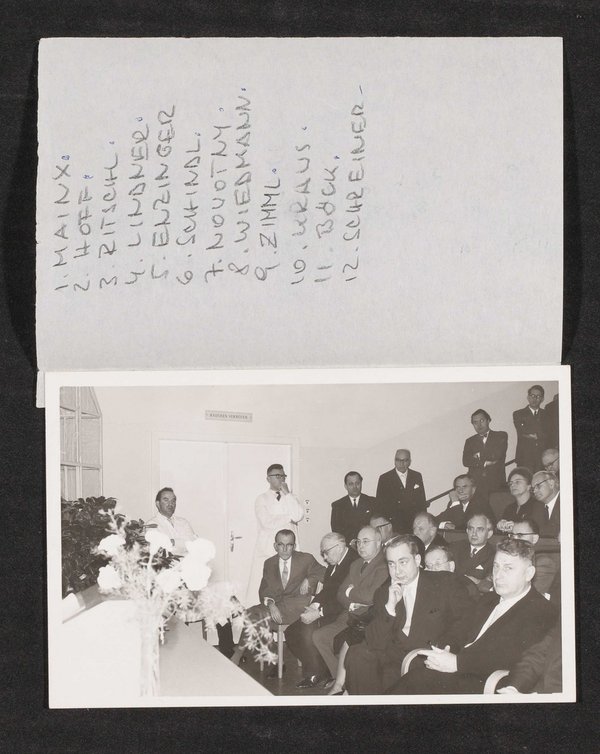 1. MAINX.
2. HOFF.
3. RITSCHL.
4. LINDNER.
5. ENZINGER
6. SCHINDL.
7. NOVOTNY.
8. WIEDMANN.
9. ZIMML.
10. KRAUS.
11. BÖCK.
12. SCHREINER-
RAUCHEN VERBOTEN